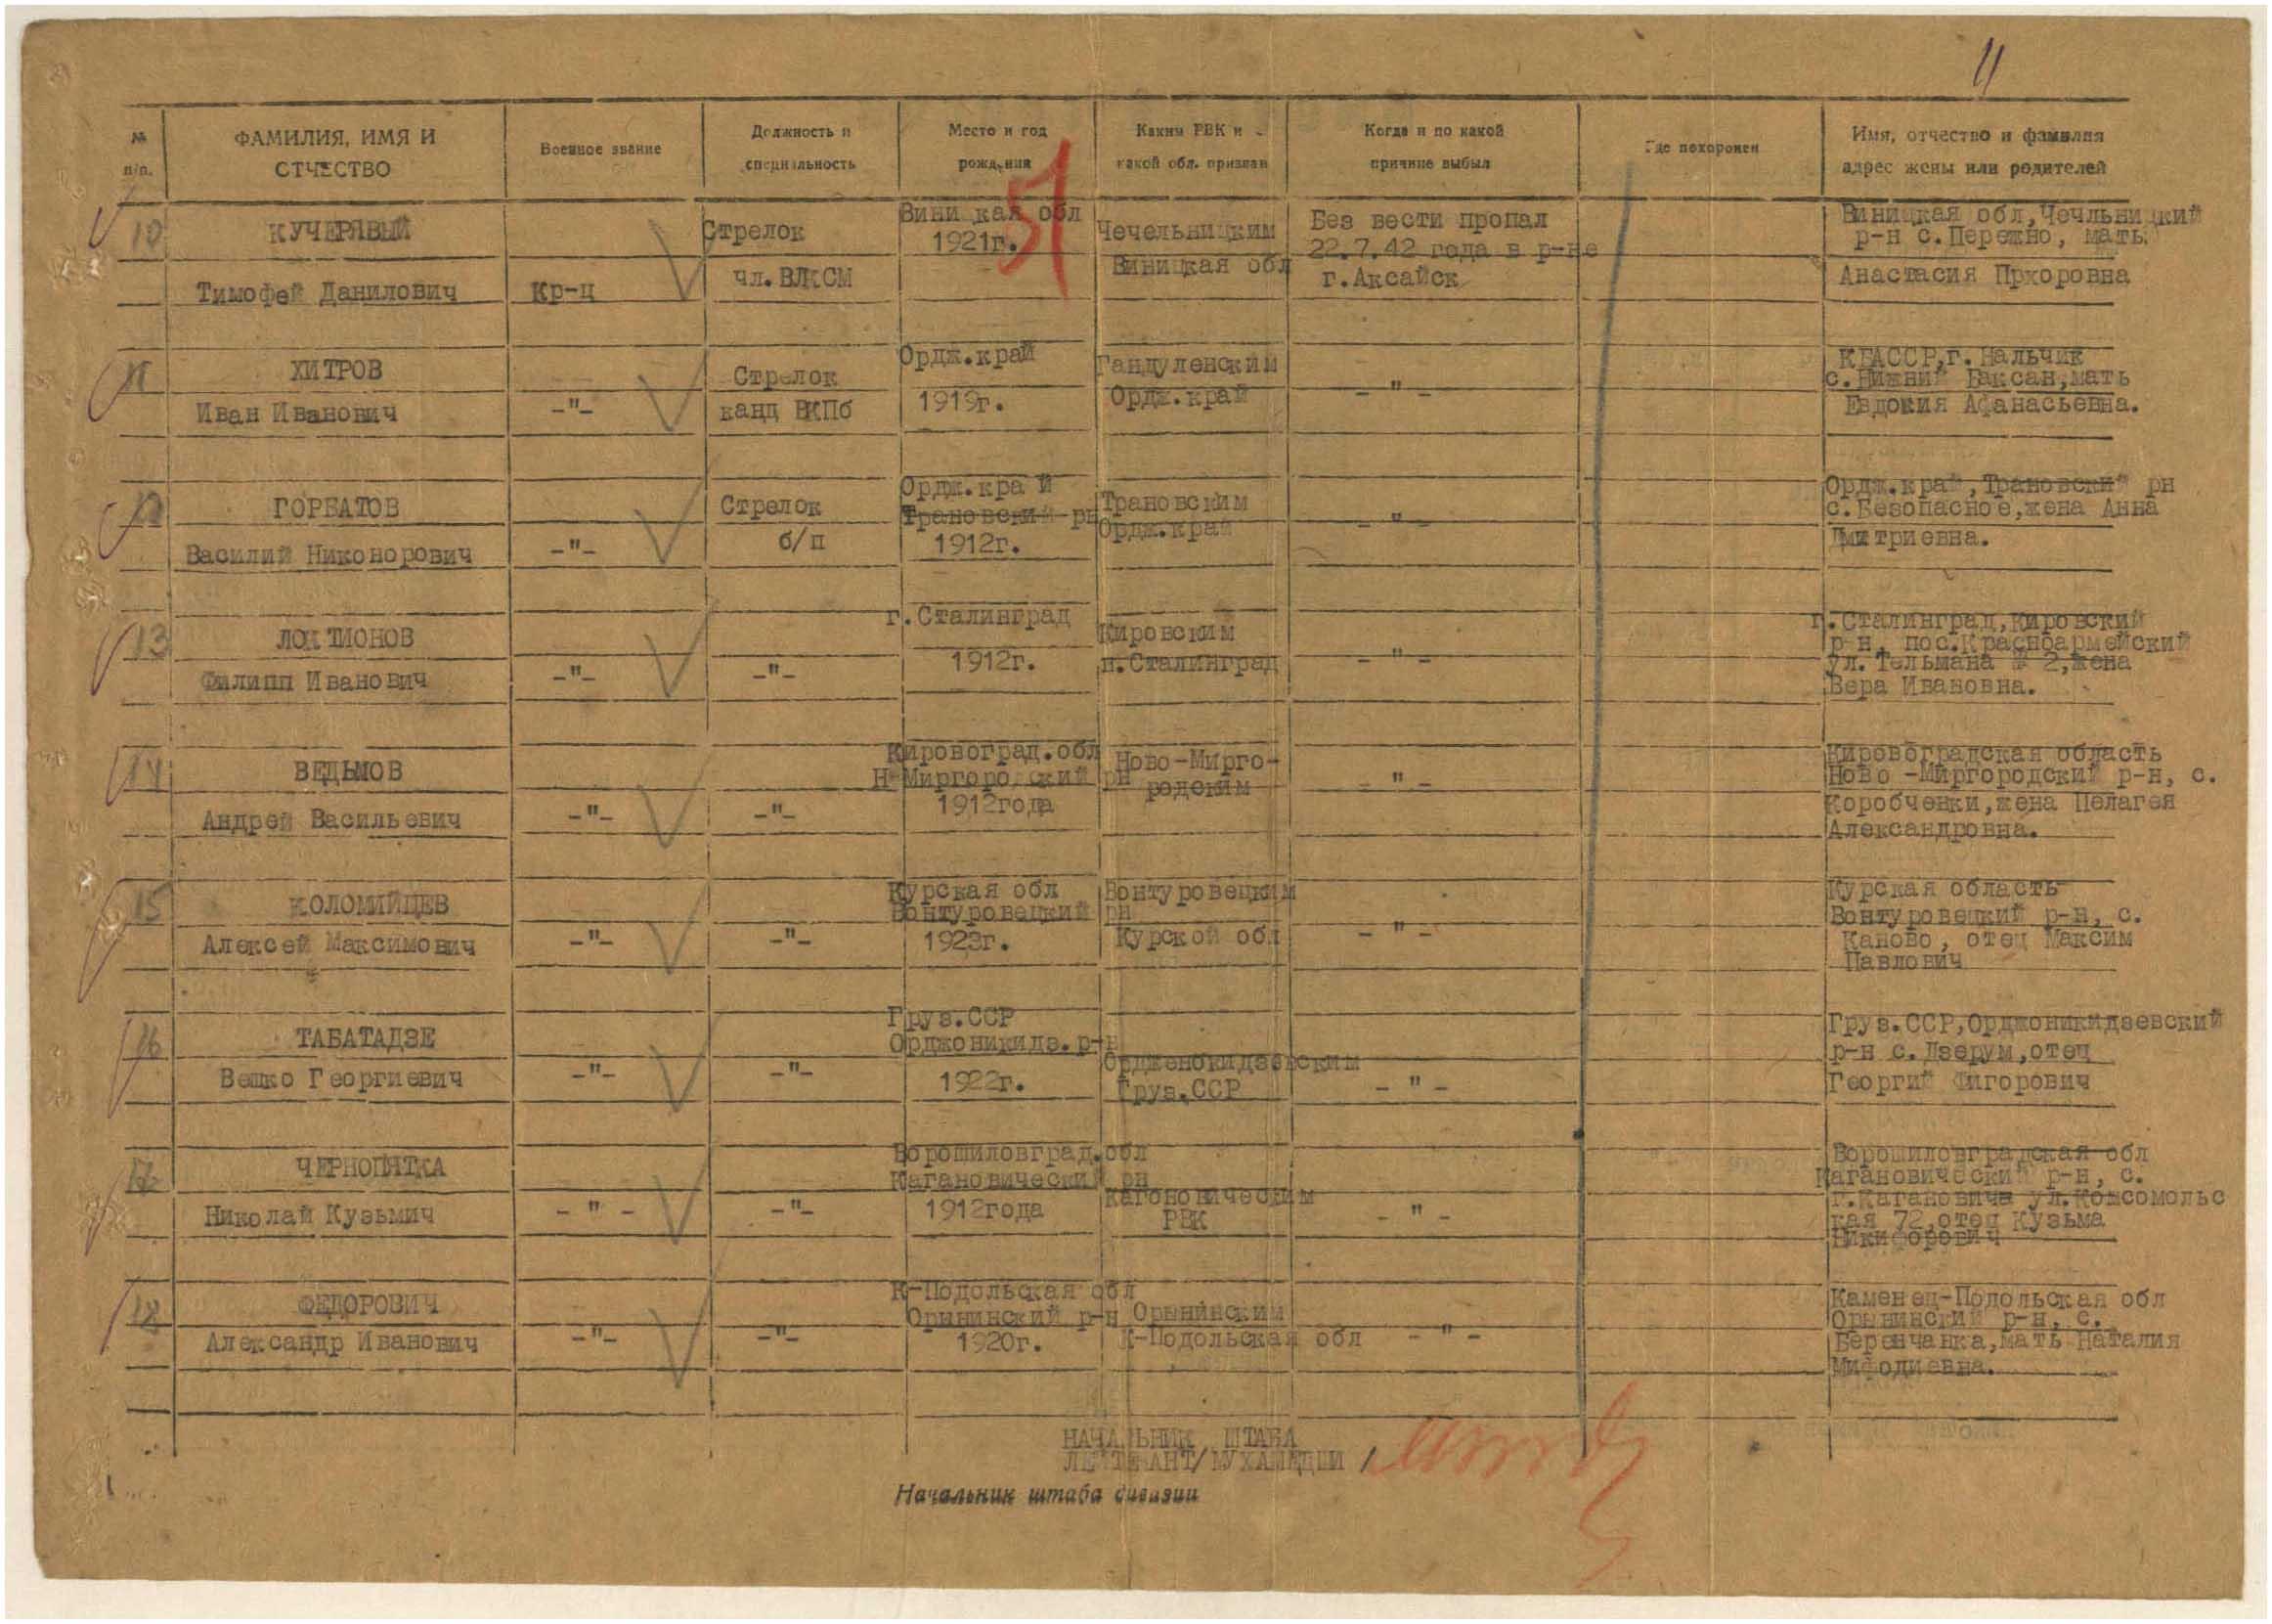 11
№ п/п.
ФАМИЛИЯ, ИМЯ И ОТЧЕСТВО
Военное звание
Должность и специальность
Место и год рождения
Каким РВК и какой обл. призван
Когда и по какой причине выбыл
Где похоронен
Имя, отчество и фамилия адрес жены или родителей
51
10
КУЧЕРЯВЫЙ
Тимофей Данилович
Кр-ц
Стрелок
чл. ВЛКСМ
Вини кая обл
1921г.
Чечельницким
Виницкая обл
Без вести пропал
22.7.42 года в р-не
г. Аксайск
Виницкая обл, Чечльницкий
р-н с. Пережно, мать
Анастасия Прхоровна
11
ХИТРОВ
Иван Иванович
-"-
Стрелок
канд ВКПб
Ордж. край
1919г.
Гандуленским
Ордж. край
- " -
КБАССР, г. Нальчик
с. Нижний Баксан, мать
Евдокия Афанасьевна.
12
ГОРБАТОВ
Василий Никонорович
-"-
Стрелок
б/п
Ордж. кра й
Трановский рн
1912г.
Трановским
Ордж. край
- " -
Ордж. край, Трановский рн
с. Безопасное, жена Анна
Дмитриевна.
13
ЛОКТИОНОВ
Филипп Иванович
-"-
-"-
г. Сталинград
1912г.
Кировским
н. Сталинград
- " -
г. Сталинград, Кировский
р-н, пос. Красноармейский
ул. Тельмана № 2, жена
Вера Ивановна.
14
ВЕДЬМОВ
Андрей Васильевич
-"-
-"-
Кировоград. обл
Н-Миргородский рн
1912года
Ново-Мирго-
родским
- " -
Кировоградская область
Ново -Миргородский р-н, с.
Коробченки, жена Пелагея
Александровна.
15
КОЛОМИЙЦЕВ
Алексей Максимович
-"-
-"-
Курская обл
Вонтуровецкий рн
1923г.
Вонтуровецким
Курской обл
- " -
Курская область
Вонтуровецкий р-н, с.
Каново, отец Максим
Павлович
16
ТАБАТАДЗЕ
Вешко Георгиевич
-"-
-"-
Груз. ССР
Орджоникидз. р-н
1922г.
Ордженокидзевским
Груз. ССР
- " -
Груз. ССР, Орджоникидзевский
р-н с. Дзерум, отец
Георгий Фигорович
17
ЧЕРНОПЯТКА
Николай Кузьмич
- " -
-"-
Ворошиловград. обл
Кагановический рн
1912года
Кагоновическим
РВК
- " -
Ворошиловградская обл
Кагановический р-н, с.
г. Кагановича ул. Комсомольс
кая 72, отец Кузьма
Никифорович
18
ФЕДОРОВИЧ
Александр Иванович
-"-
-"-
К-Подольская обл
Орынинский р-н
1920г.
Орынинским
К-Подольская обл
- " -
Каменец-Подольская обл
Орынинский р-н, с.
Беренчанка, мать Наталия
Мифодиевна.
НАЧАЛЬНИК ШТАБА
ЛЕЙТЕНАНТ/МУХАМЕДШИ /
Начальник штаба дивизии